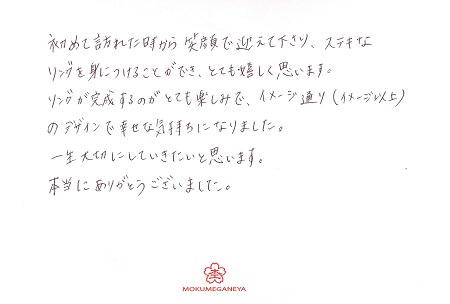 初めて訪れた時から笑顔で迎えて下さり、ステキな
リングを身につけることができ、とても嬉しく思います。
リングが完成するのがとても楽しみで、イメージ通り(イメージ以上)
のデザインで幸せな気持ちになりました。
一生大切にしていきたいと思います。
本当にありがとうございました。
MOKUMEGANEYA